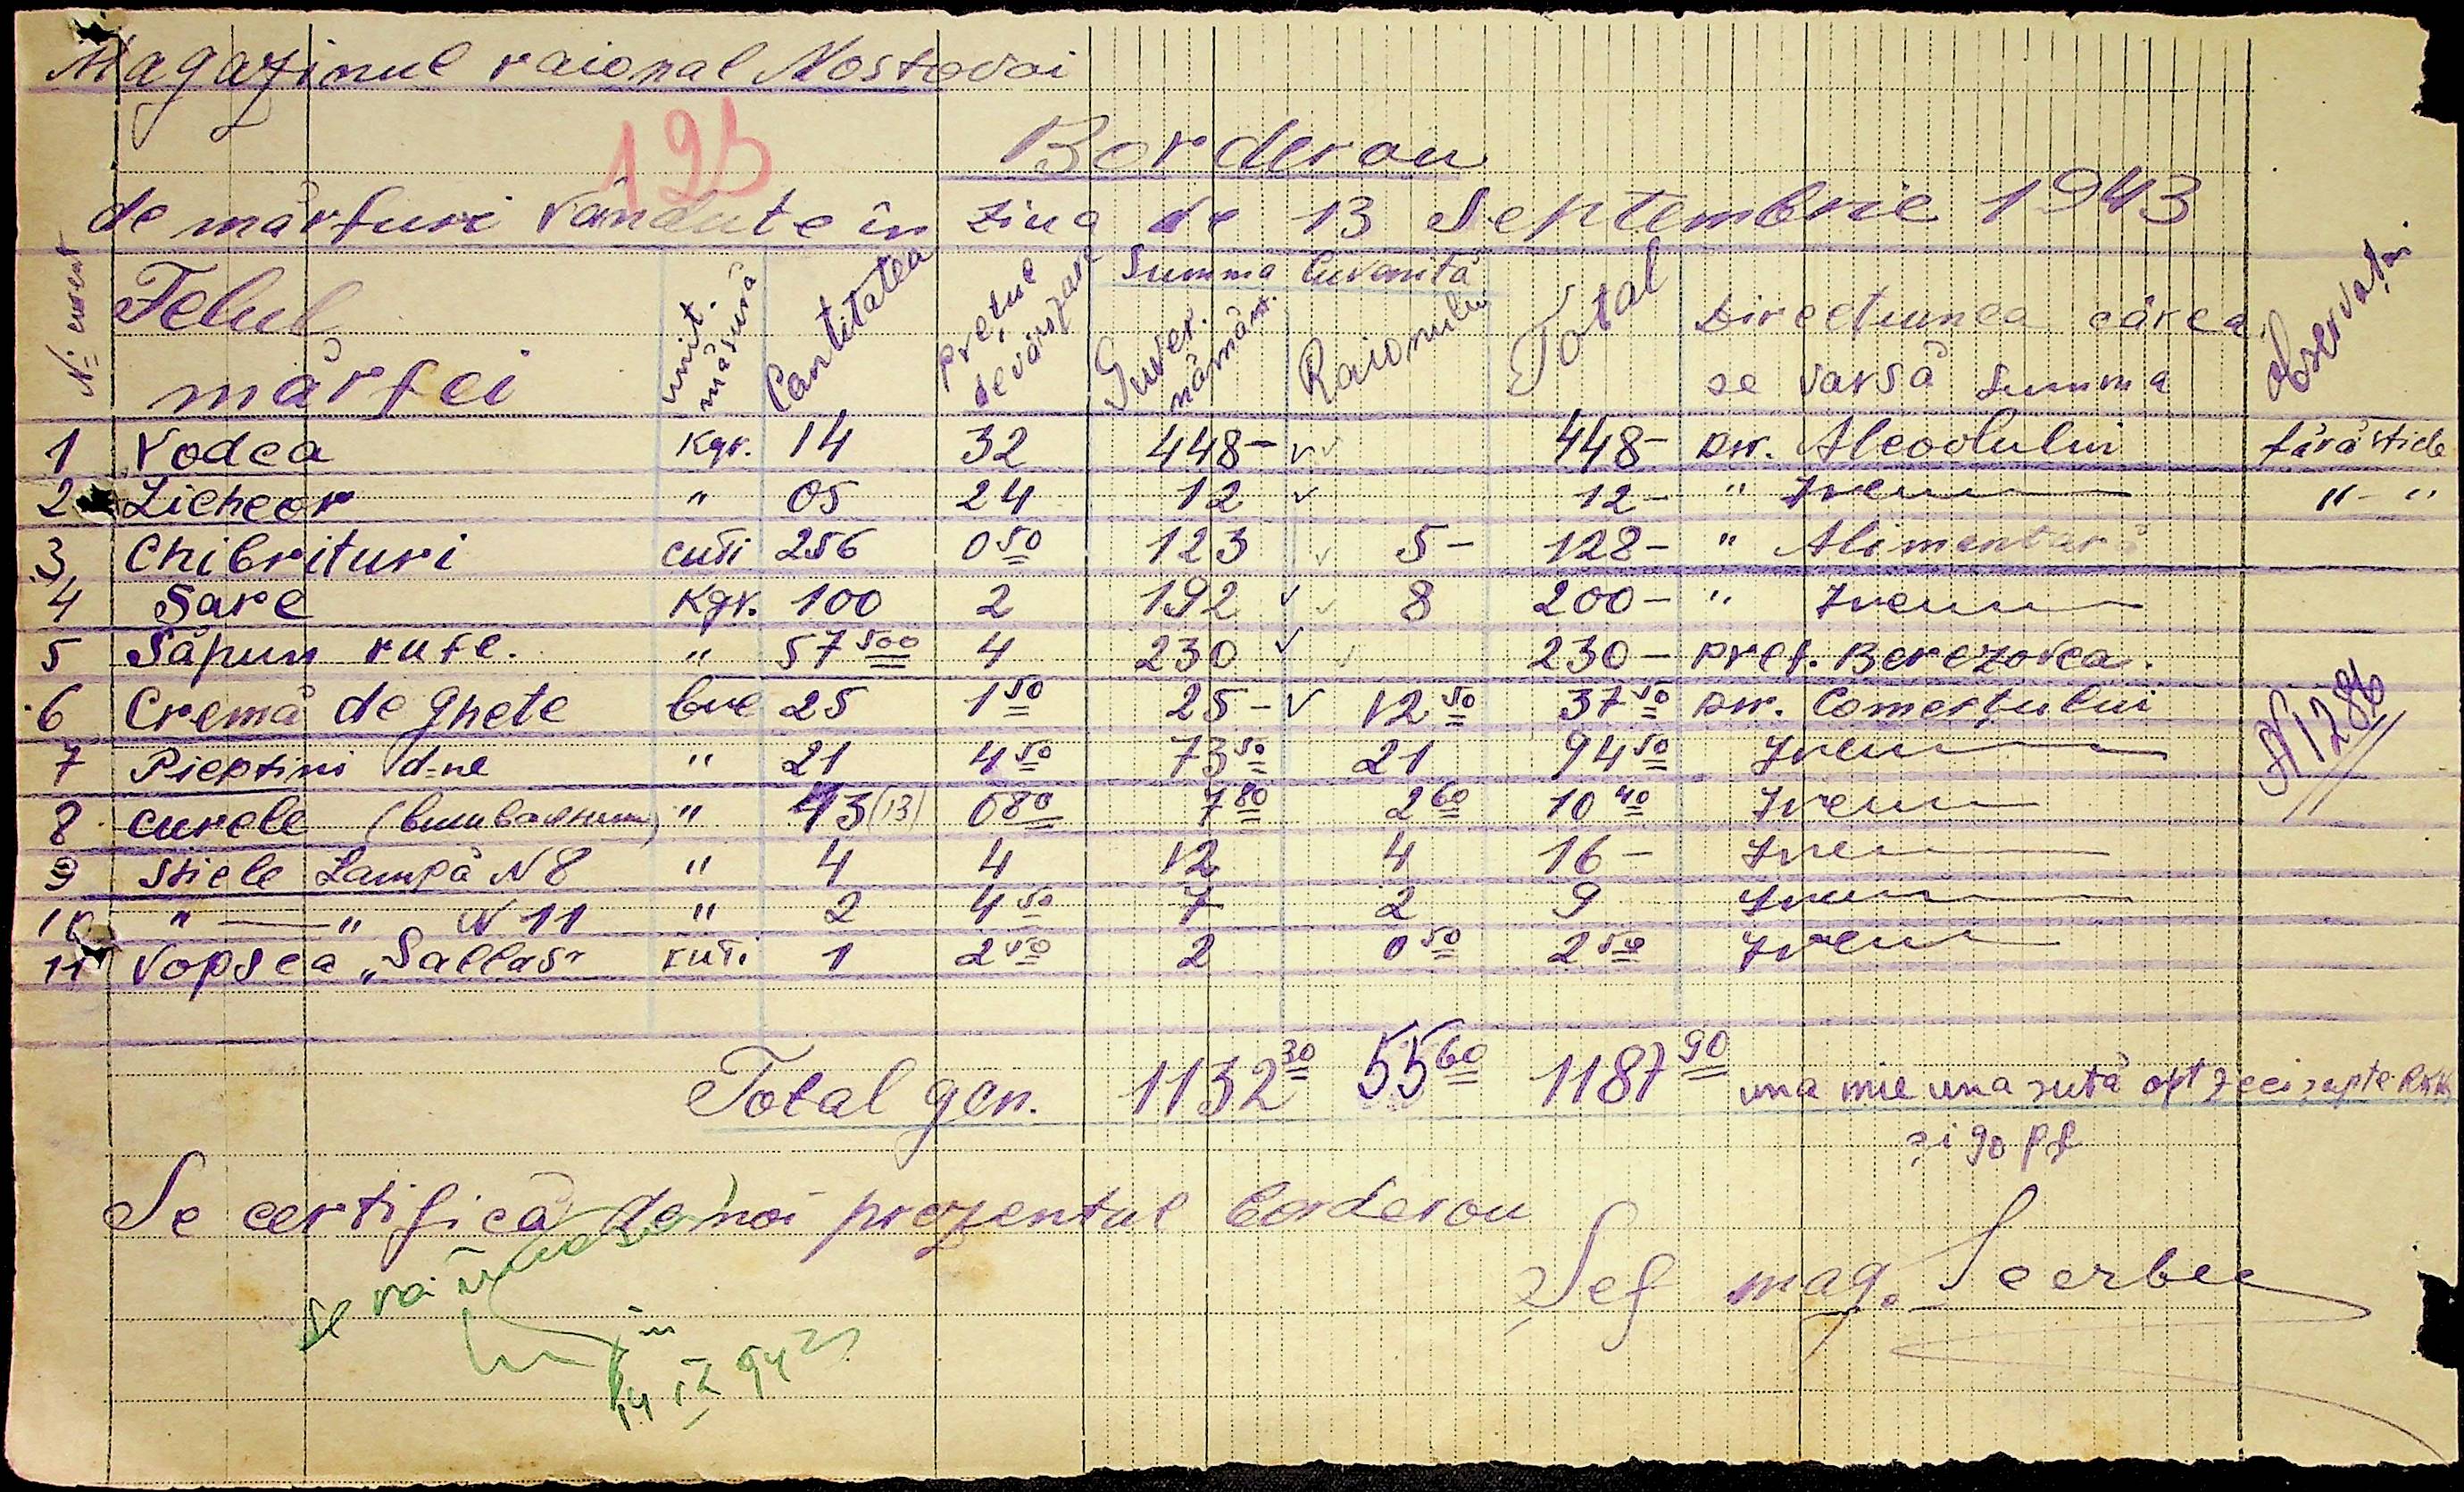 Magazinul raional Mostovoi
195
Borderou
de mărfuri vândute în ziua de 13 Septembrie 1943
№ curent Felul mărfei unit. măsură Cantitatea prețul de vânzare Summa Cuvenită Guvernământ. Raionului Total Direcțiunea cărea se varsă summa Observațiuni
1 Vodca Kgr. 14 32 448- 448- Dir. Alcoolului fără sticle
2 Licheor " 05 24 12 12- " Idem "-"
3 Chibrituri cuti 256 0 50 123 5- 128- " Alimentară
4 Sare Kgr. 100 2 192 8 200- " Idem
5 Săpun rufe. " 57 500 4 230 230- Pref. Berezovca.
6 Cremă de ghete buc 25 1 50 25- 12 50 37 50 Dir. Comerțului
7 Pieptini d-ne " 21 4 50 73 50 21 94 50 Idem
8 curele " 43 (13) 0 80 7 80 2 60 10 40 Idem
9 Sticle Lampă N 8 " 4 4 12 4 16- Idem
10 "—" N 11 " 2 4 50 7 2 9 Idem
11 Vopsea „Sallas" cuti 1 2 50 2 0 50 2 50 Idem
N 1286
Total gen. 1132 30 55 60 1187 90 una mie una sută opt zeci șapte RKKS
și 90 pf
Se certifică de noi prezentul borderou
Șef mag. Scerbu
se va
14 IX 943